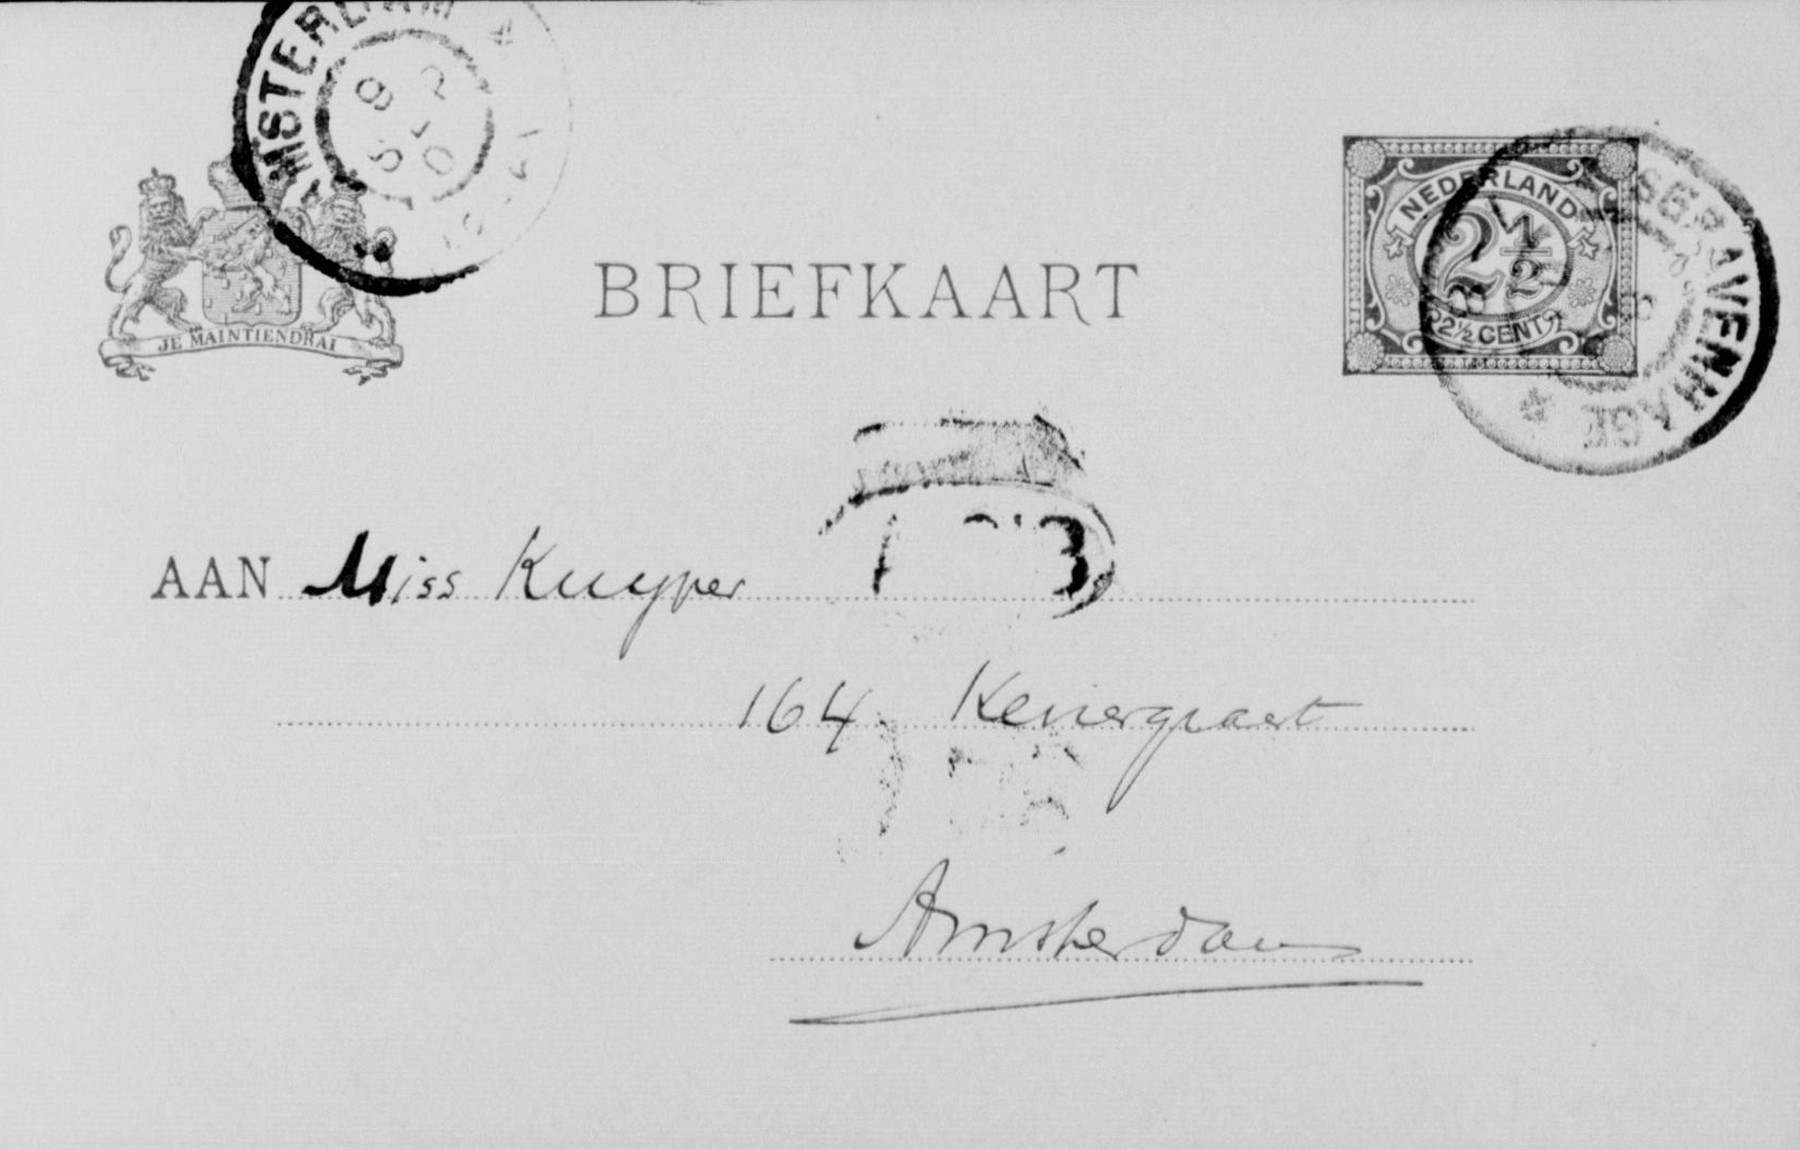 AMSTERDAM
JE MAINTIENDRAI
BRIEFKAART
NEDERLAND
2½
2½ CENT
'S GRAVENHAGE
AAN Miss Kuyper
164 Keizergracht
Amsterdam